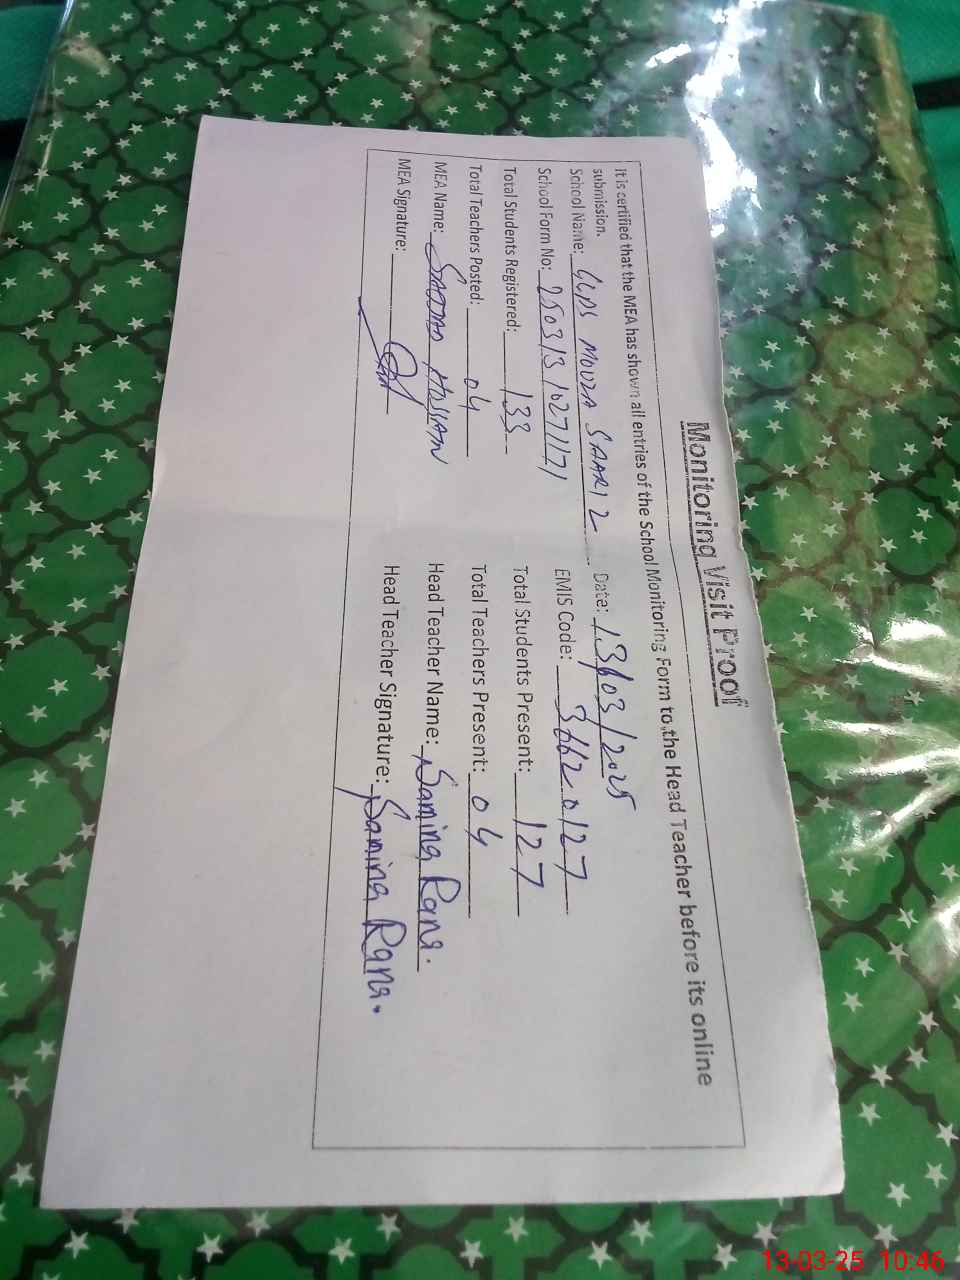 Monitoring Visit Proof
It is certified that the MEA has shown all entries of the School Monitoring Form to the Head Teacher before its online
submission.
School Name: GGPS MOUZA SAARI 2 Date: 13/03/2025
School Form No: 2503/3/027/171 EMIS Code: 36620127
Total Students Registered: 133 Total Students Present: 127
Total Teachers Posted: 04 Total Teachers Present: 04
MEA Name: HASSAN Head Teacher Name: Samina Rana.
MEA Signature: Head Teacher Signature: Samina Rana.
13-03-25 10:46